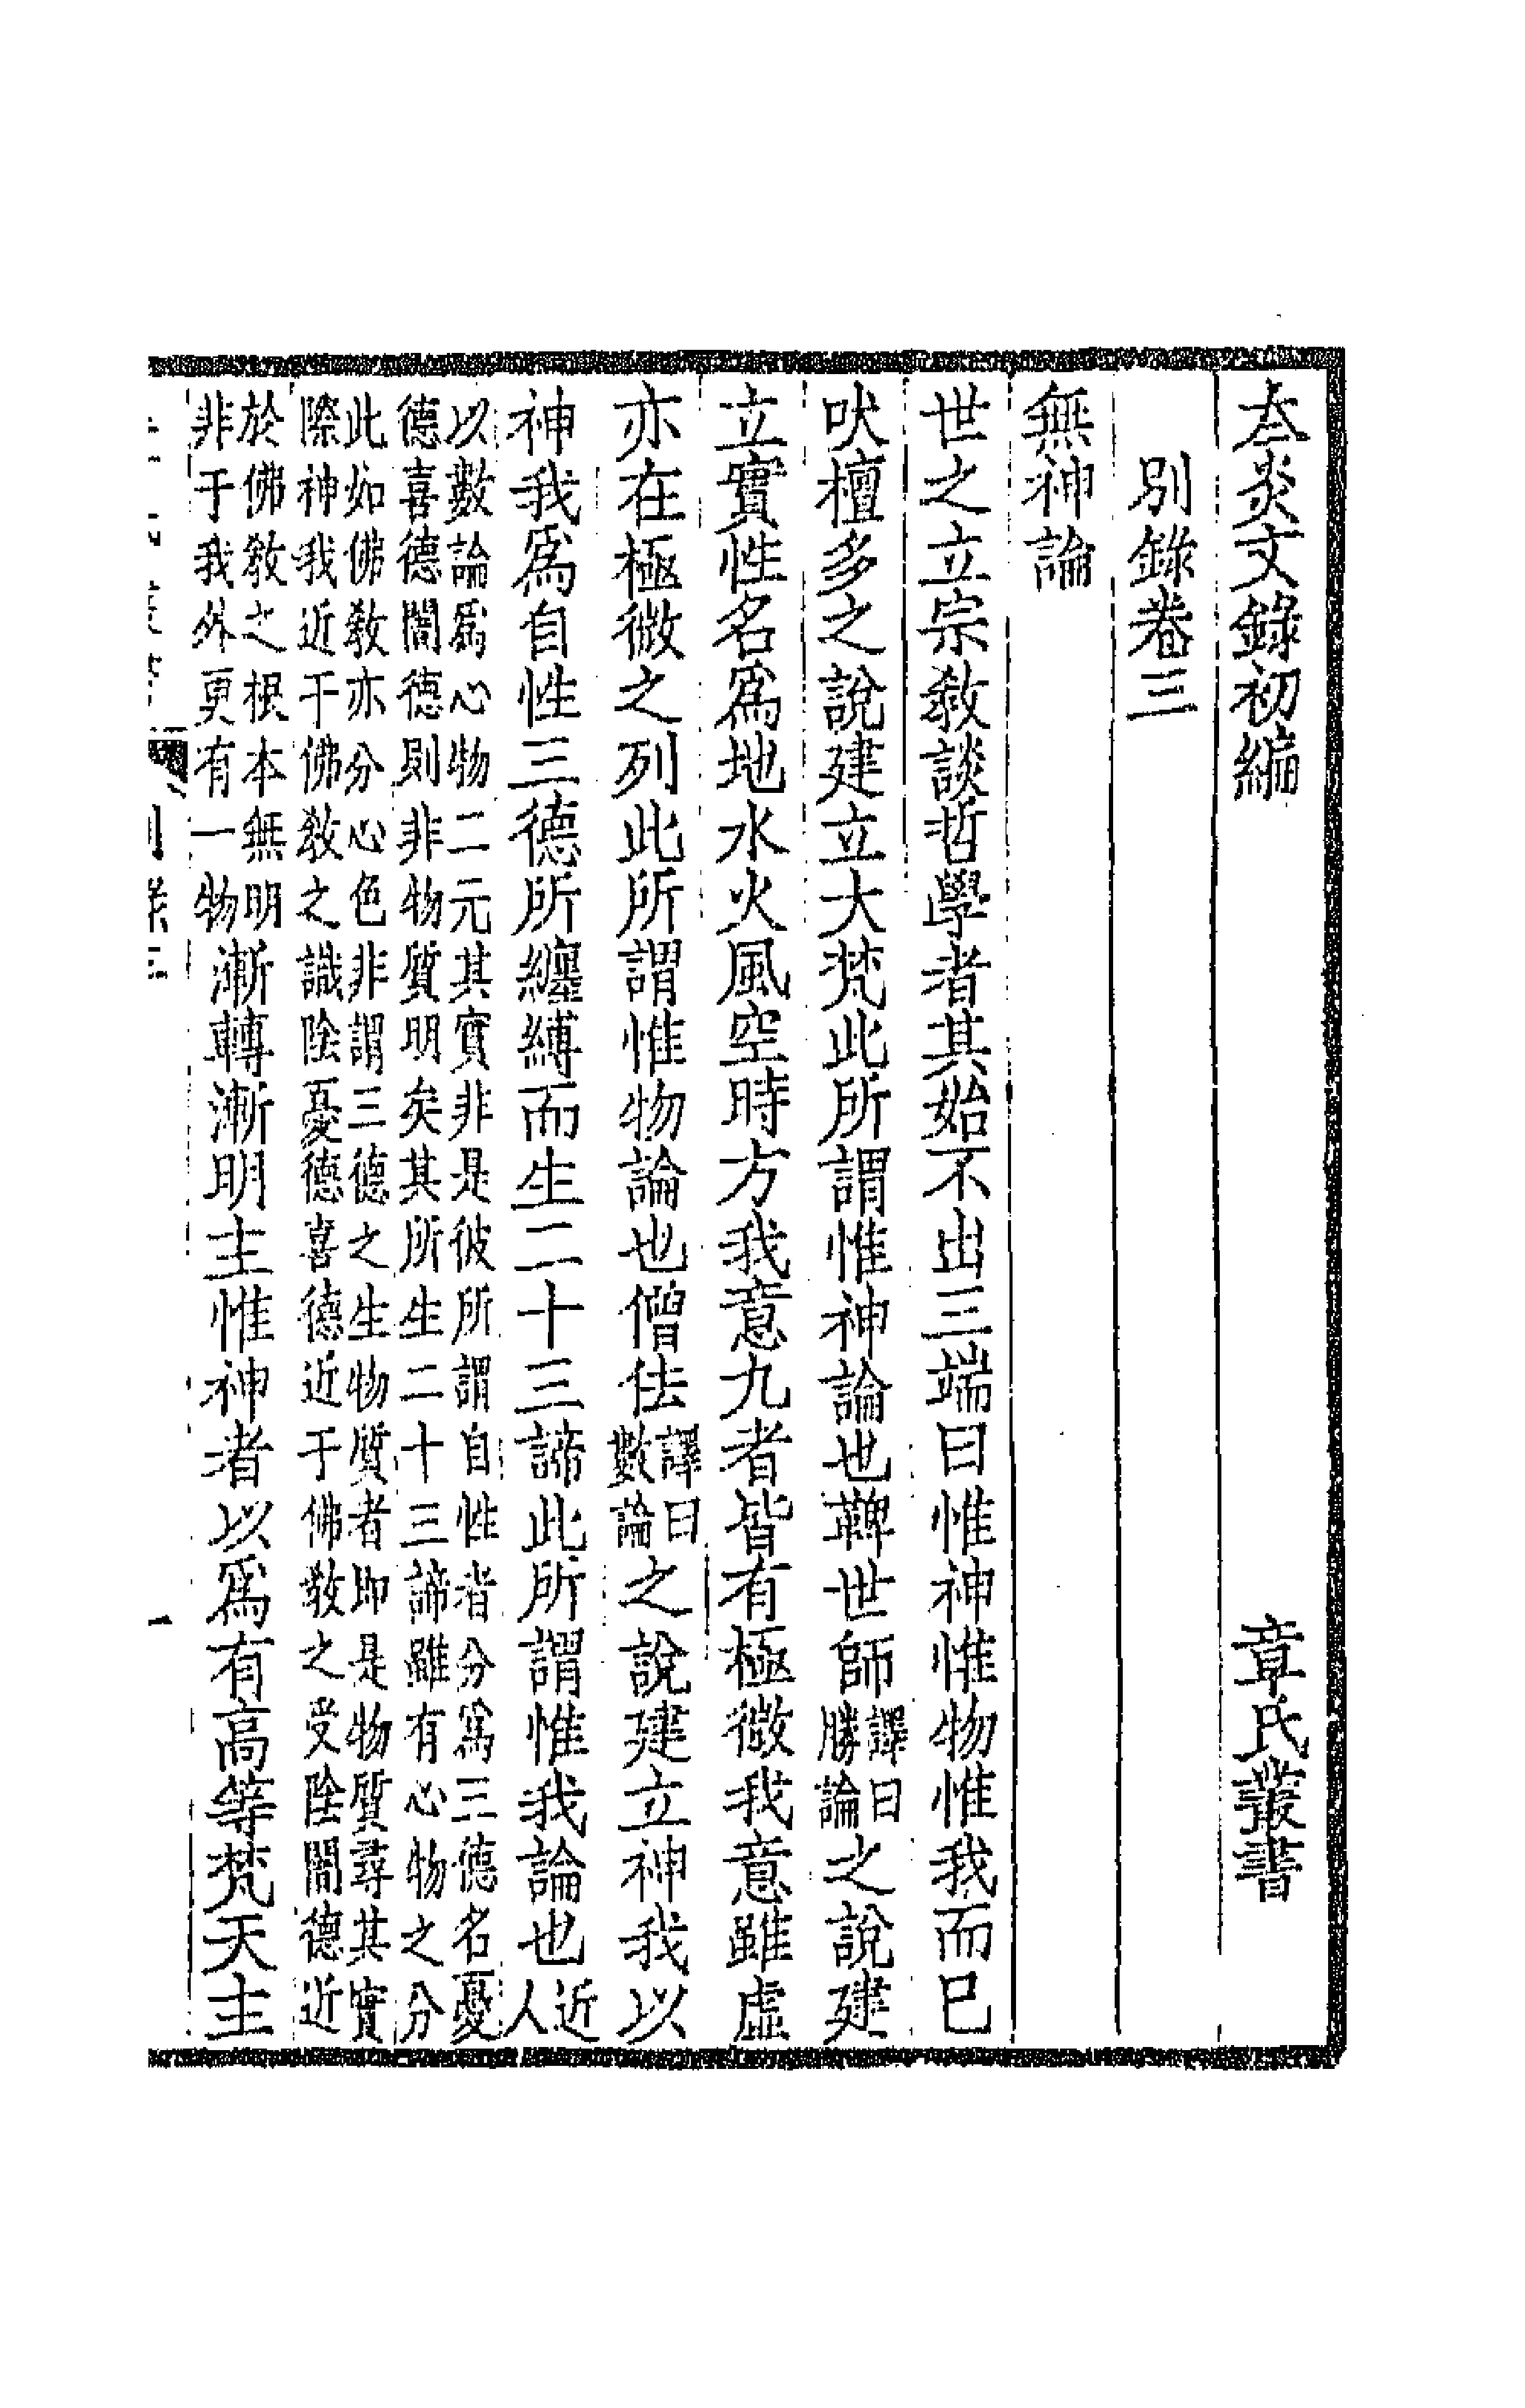 夳炎文錄初編　章氏叢書
別錄卷三
無神論
世之立宗教談哲學者其始不出三端曰惟神惟物惟我而已
吠檀多之說建立大梵此所謂惟神論也鞞世師譯曰勝論之說建
立實性名爲地水火風空時方我意九者皆有極微我意雖虛
亦在極微之列此所謂惟物論也僧佉譯曰數論之說建立神我以
神我爲自性三德所纏縛而生二十三諦此所謂惟我論也近人
以數論爲心物二元其實非是彼所謂自性者分爲三德名憂
德喜德闇德則非物質明矣其所生二十三諦雖有心物之分
此如佛教亦分心色非謂三德之生物質者即是物質尋其實
際神我近于佛教之識陰憂德喜德近于佛教之受陰闇德近
於佛教之根本無明
非于我外更有一物
漸轉漸明主惟神者以爲有高等梵天主
一